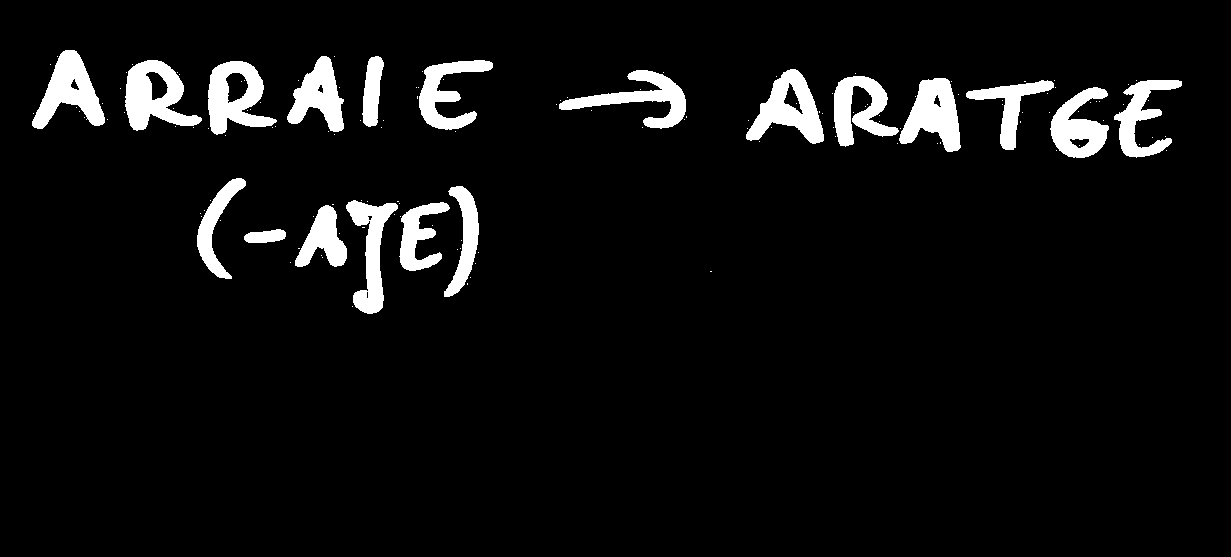 ARRAIE → ARATGE
(-AJE)